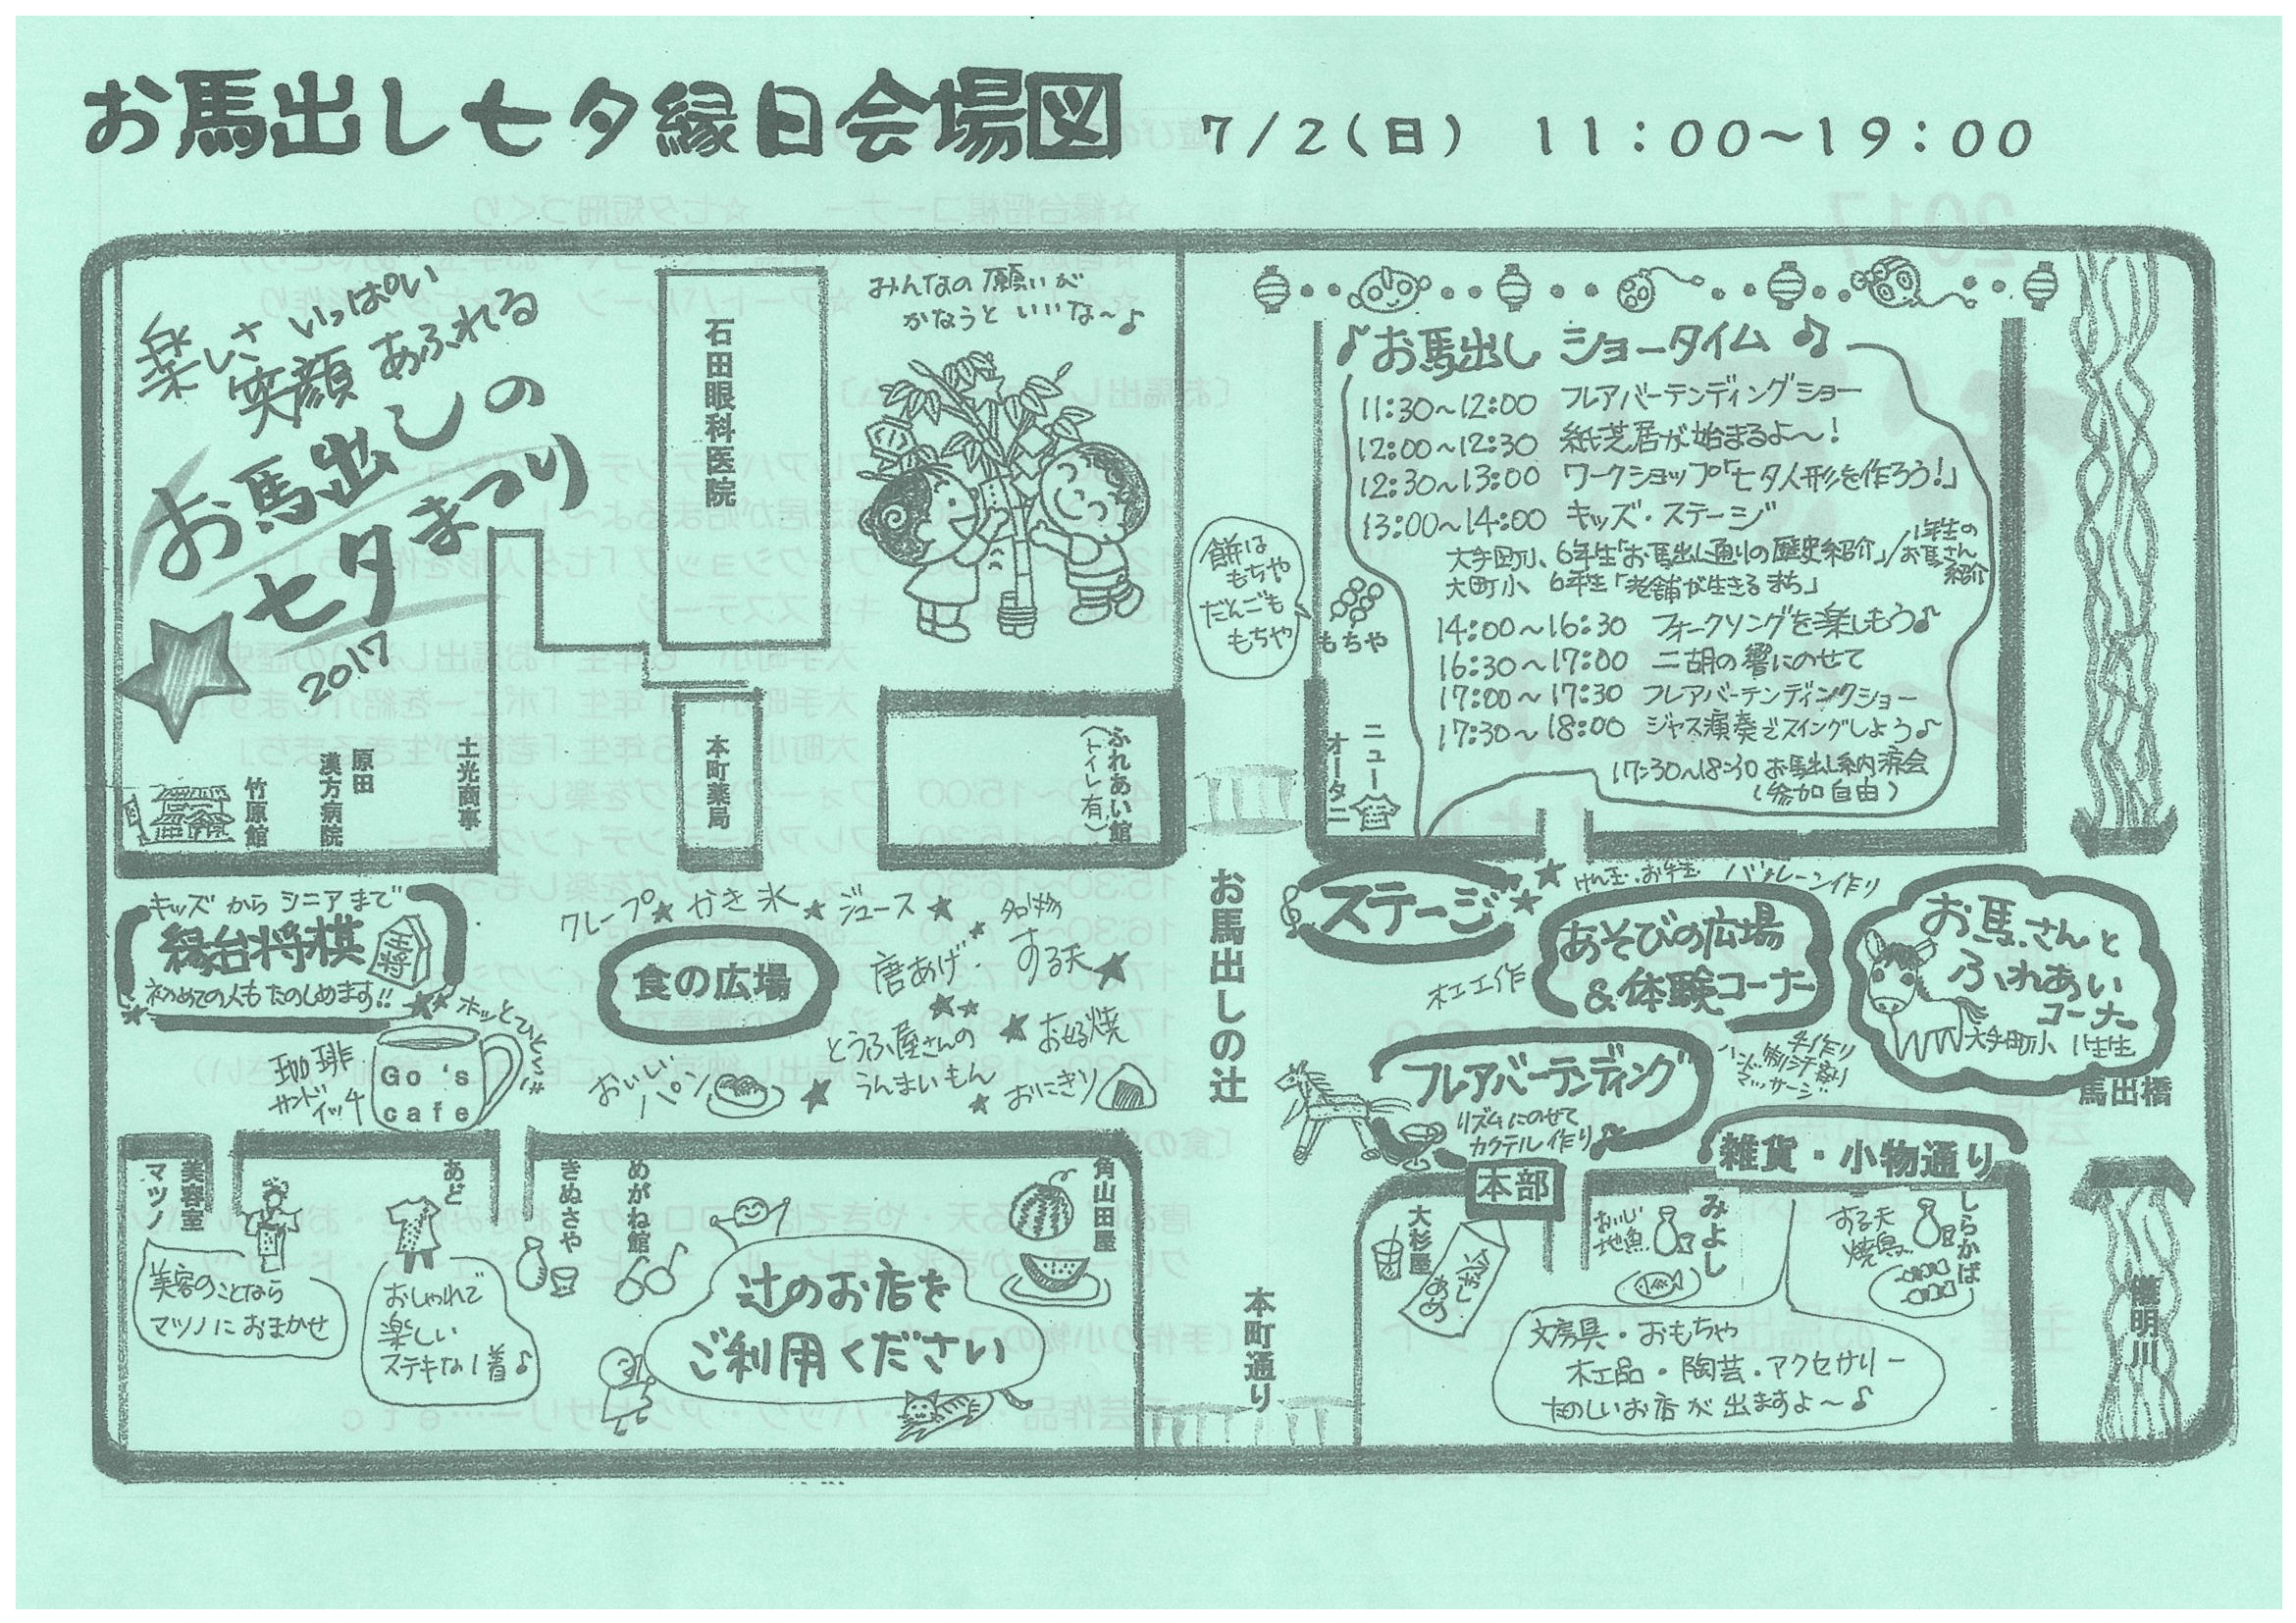 お馬出し七夕縁日会場図
7/2(日) 11:00～19:00
楽しさ いっぱい
笑顔 あふれる
お馬出しの
七夕まつり
2017
石田眼科医院
みんなの願いが
かなうと いいな～♪
竹原館
原田
漢方病院
土光商事
本町薬局
ふれあい館
(トイレ有)
餅は
もちや
だんごも
もちや
もちや
ニュー
オータニ
♪お馬出し ショータイム♫
11:30～12:00 フレアバーテンディングショー
12:00～12:30 紙芝居が始まるよ～!
12:30～13:00 ワークショップ「七夕人形を作ろう!」
13:00～14:00 キッズ・ステージ
大手町小、6年生「お馬出し通りの歴史紹介」/1年生の
お馬さん
紹介
大町小、6年生「老舗が生きるまち」
14:00～16:30 フォークソングを楽しもう♪
16:30～17:00 二胡の響にのせて
17:00～17:30 フレアバーテンディングショー
17:30～18:00 ジャズ演奏でスイングしよう♪
17:30～18:30 お馬出し納涼会
(参加自由)
キッズ から シニア まで
縁台将棋
王将
初めての人も たのしめます!!
ホッとひといき
珈琲
サンドイッチ
Go's
cafe
クレープ★かき氷★ジュース★
名物
する天★
唐あげ★
食の広場
とうふ屋さんの
うんまいもん
★お好焼
おいしい
パン
★おにぎり
お馬出しの辻
本町通り
ステージ
けん玉・お手玉 バルーン作り
あそびの広場
&体験コーナー
木工工作
お馬さんと
ふれあい
コーナー
大手町小 1年生
馬出橋
フレアバーテンディング
リズムにのせて
カクテル作り
手作り
ハンド
マッサージ
雑貨・小物通り
本部
美容室
マツノ
美容のことなら
マツノにおまかせ
あど
おしゃれで
楽しい
ステキな1着♪
きぬさや
めがね館
辻のお店を
ご利用ください
角山田屋
大杉屋
あめ
おいしい
地魚
みよし
する天
焼鳥
しらかば
文房具・おもちゃ
木工品・陶芸・アクセサリー
たのしいお店が出ますよ～♪
儀明川